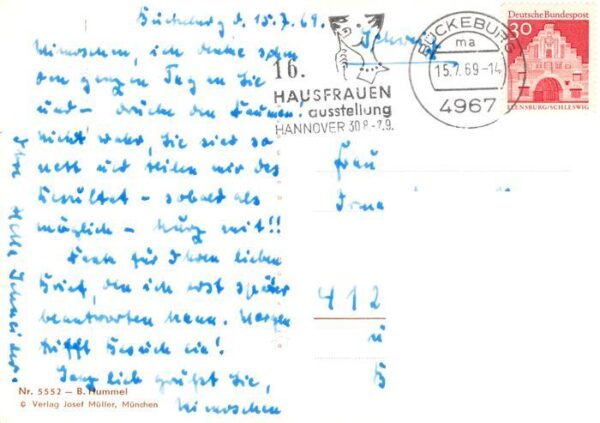 Bückeburg d. 15.7.69.
Mimoschen, ich denke schon
den ganzen Tag an Sie
und - drücke den Daumen!
Nicht wahr, Sie sind so
nett und teilen mir das
Resultat - sobald als
möglich - kurz mit!!
Dank für Ihren lieben
Brief, den ich erst später
beantworten kann. Morgen
trifft Besuch ein!
Ganz lich grüßt Sie,
Mimoschen
Ihre Schneider.
Nr. 5552 — B. Hummel
© Verlag Josef Müller, München
16.
HAUSFRAUEN
ausstellung
HANNOVER 30.8.-7.9.
BÜCKEBURG 1
ma
15.7.69-14
4967
Deutsche Bundespost
30
FLENSBURG/SCHLESWIG
Frau
Irma
412